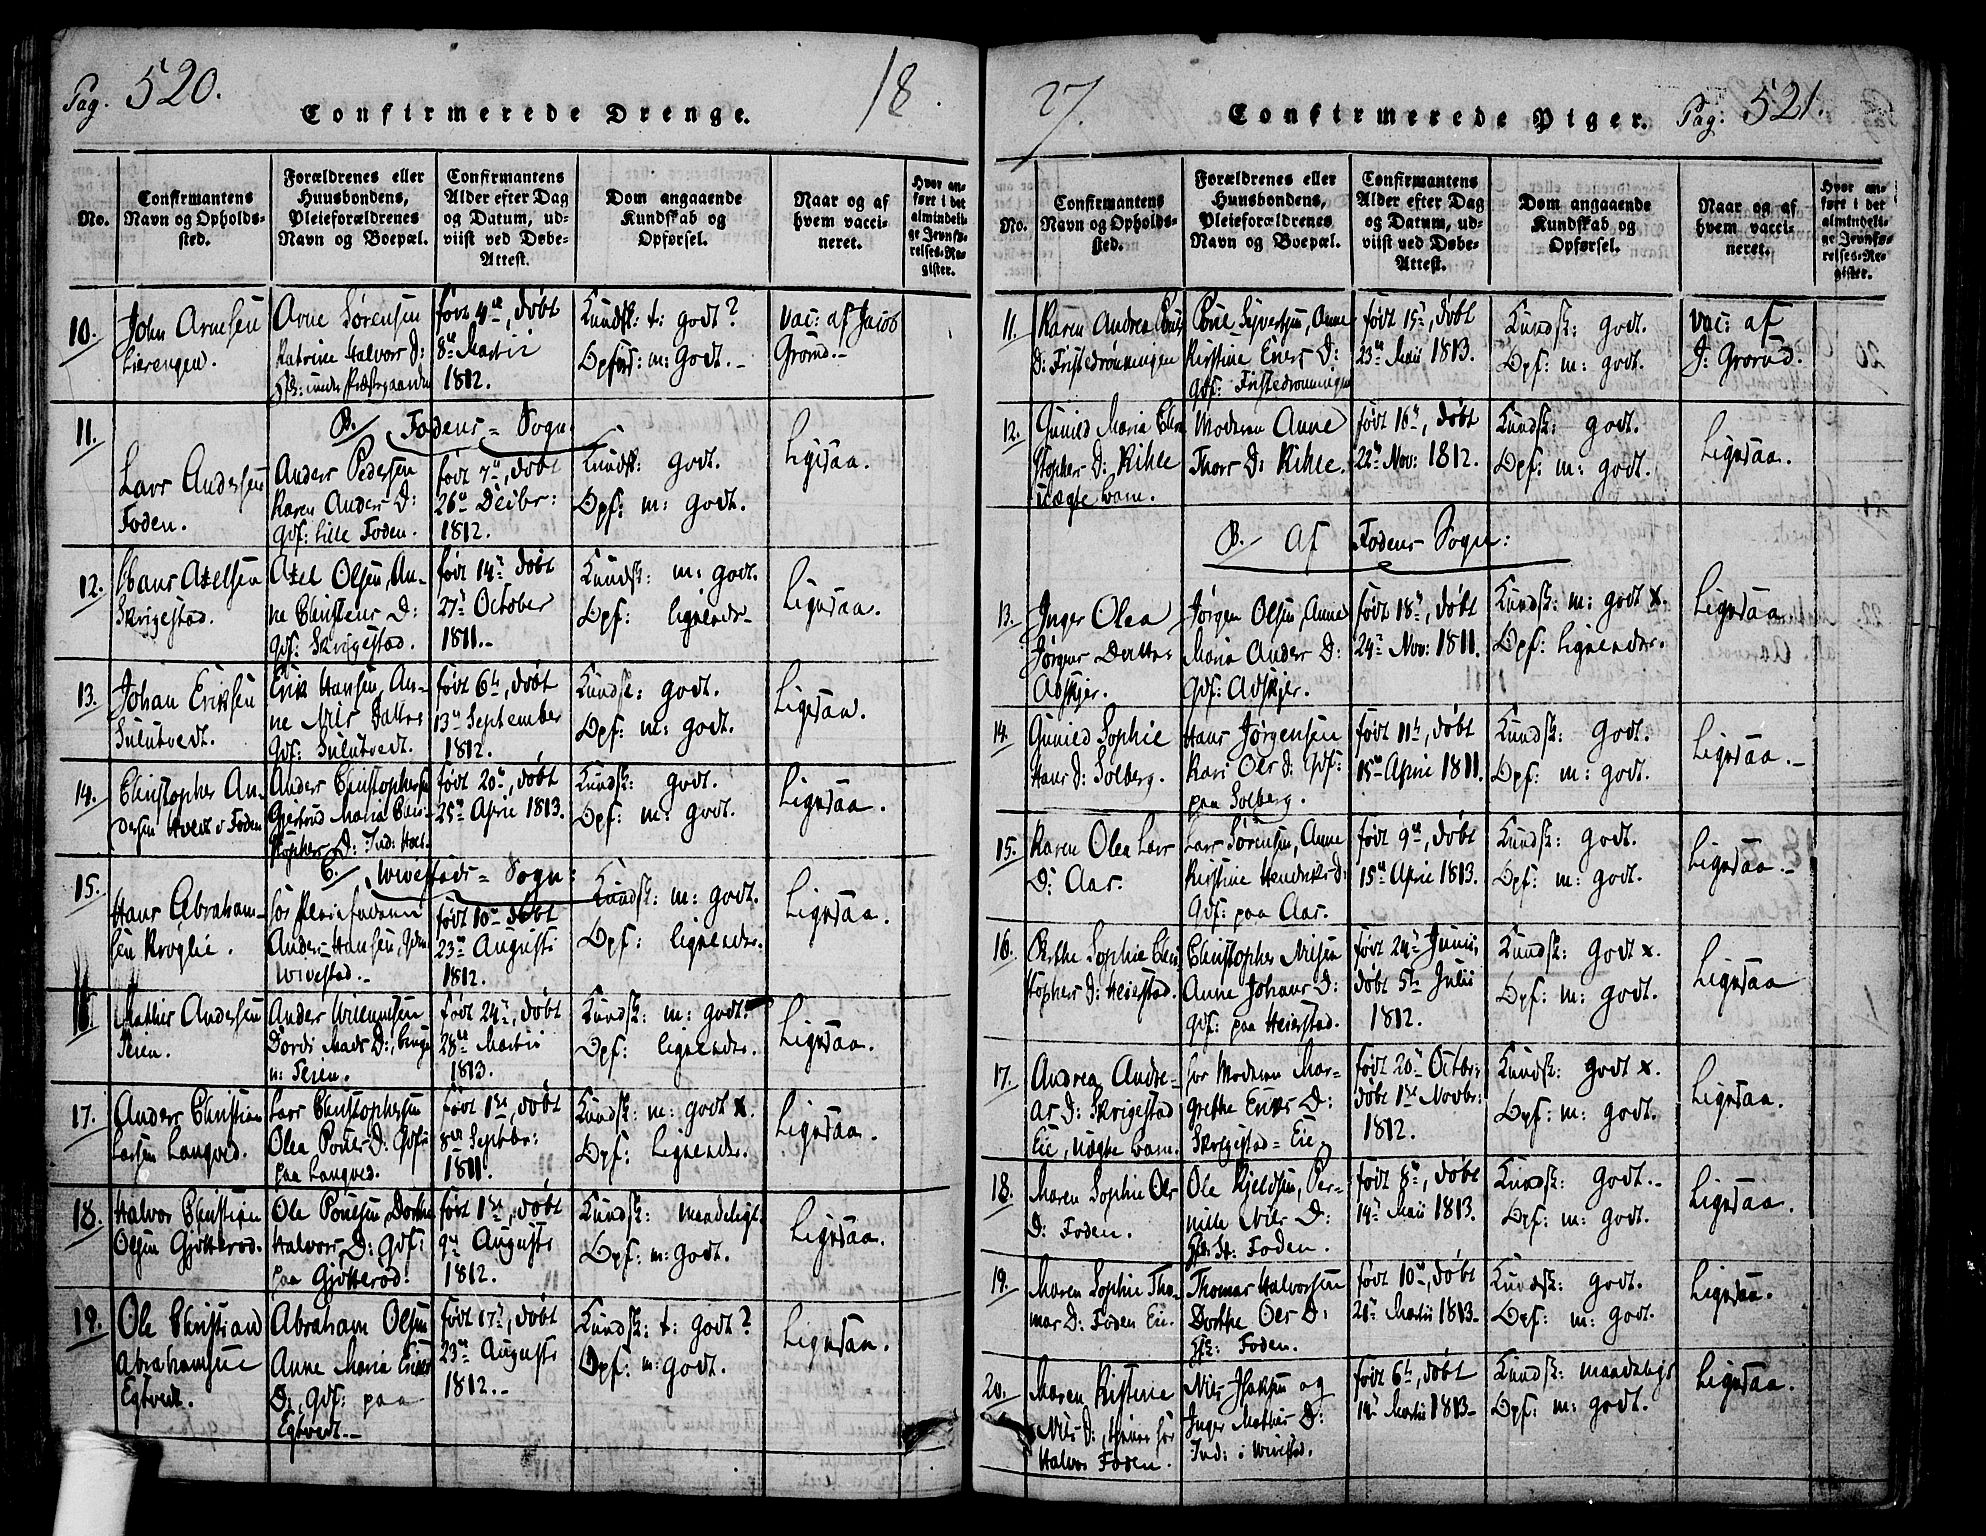 Pag. 520.
18.
Confirmerede Drenge.
No.
Confirmantens
Navn og Opholds-
sted.
Forældrenes eller
Huusbondens,
Pleieforældrenes
Navn og Boepæl.
Confirmantens
Alder efter Dag
og Datum, ud-
viist ved Døbe-
Attest.
Dom angaaende
Kundskab og
Opførsel.
Naar og af
hvem vacci-
neret.
Hvor an-
ført i det
almindeli-
ge Jevnfø-
relses-Re-
gister.
10.
John Arnesen
Lierengen.
Arne Sørensen
Katrine Halvors D:
Hfs: under Præstegaarden
født 4de, døbt
8de Martii
1812.
Kundsk: t: godt?
Opførs: m: godt.
Vac: af Jacob
Grorud.
B. Fodens Sogn.
11.
Lars Andersen
Foden.
Anders Pedersen
Karen Anders D:
Gdf: Lille Foden.
født 7de, døbt
26de Decbr:
1812.
Kundsk: godt.
Opf: m: godt.
Ligesaa.
12.
Hans Axelsen
Skrigestad.
Axel Olsen, An-
ne Christens D:
Gdf: Skrigestad.
født 14de, døbt
27de October
1811.
Kundsk: m: godt.
Opf: lignende
Ligesaa.
13.
Johan Eriksen
Sulutvedt.
Erik Hansen, An-
ne Nils Datter
Gdf: Sulutvedt.
født 6te, døbt
13de September
1812.
Kundsk: godt.
Opf: m: godt.
Ligesaa.
14.
Christopher An-
dersen Hvedt v Foden
Anders Christophersen
Gjertrud Maria Chri-
stophers D: Ind:
født 20de, døbt
25de April 1813.
Kundsk: godt.
Opf: m: godt.
Ligesaa.
C. Wivestads Sogn:
15.
Hans Abraham-
sen Kroglie.
for Pleiefaderen
Anders Hansen,
Wivestad.
født 10de døbt
23de Augusti
1812.
Kundsk: m: godt.
Opf: lignende.
Ligesaa.
16.
Mathis Andersen
Teien.
Anders Willumsen
Dordi Mads D:,
n: Teien.
født 24de, døbt
28de Martii
1813.
Kundsk: m: godt.
Opf: lignende.
Ligesaa.
17.
Anders Christian
Larsen Langved.
Lars Christophersen
Olea Pouels D: Gdf:
paa Langved.
født 1ste, døbt
8de Septbr:
1811.
Kundsk: m: godt x.
Opf: lignende.
Ligesaa.
18.
Halvor Christian
Olsen Gjøtterød.
Ole Pouelsen, Dorthe
Halvors D: Gdf:
paa Gjøtterød.
født 1ste, døbt
9de Augusti
1812.
Kundsk: maadeligt.
Opf: m: godt.
Ligesaa.
19.
Ole Christian
Abrahamsen
Egtvedt.
Abraham Olsen
Anne Maria Eriks
D:, Gdf: paa
Egtvedt.
født 17de, døbt
23de Augusti
1812.
Kundsk: t: godt?
Opf: m: godt.
Ligesaa.
27.
Confirmerede Piger.
Pag: 521.
No.
Confirmantens
Navn og Opholds-
sted.
Forældrenes eller
Huusbondens,
Pleieforældrenes
Navn og Boepæl.
Confirmantens
Alder efter Dag
og Datum, ud-
viist ved Døbe-
Attest.
Dom angaaende
Kundskab og
Opførsel.
Naar og af
hvem vacci-
neret.
Hvor an-
ført i det
almindeli-
ge Jevnfø-
relses-Re-
gister.
11.
Karen Andrea Pouls
D: Fristedrønningen
Poul Sivertsen, Anne
Kirstine Eners D:
Gdf: Fristedrønningen
født 15de, døbt
23de Maii 1813.
Kundsk: godt.
Opf: m: godt.
Vac: af
J: Grorud.
12.
Gunild Maria Chri-
stophers D: Kihle
uægte barn.
Moderen Anne
Thors D: Kihle.
født 16de, døbt
22de Nov: 1812.
Kundsk: godt.
Opf: m: godt.
Ligesaa.
B. Af Fodens Sogn:
13.
Inger Olea
Jørgens Datter
Adskjer.
Jørgen Olsen, Anne
Maria Anders D:
Gdf: Adskjer.
født 18de, døbt
24de Nov: 1811.
Kundsk: m: godt x.
Opf: lignende.
Ligesaa.
14.
Gunild Sophie
Hans D: Solberg.
Hans Jørgensen
Kari Ols D: Gdf:
paa Solberg.
født 11te, døbt
15de April 1811.
Kundsk: godt.
Opf: m: godt.
Ligesaa.
15.
Karen Olea Lars
D: Aar.
Lars Sørensen, Anne
Kirstine Hendriks D:
Gdf: paa Aar.
født 9de, døbt
15de April 1813.
Kundsk: godt.
Opf: m: godt.
Ligesaa.
16.
Berthe Sophie Chri-
stophers D: Heierstad.
Christopher Nilsen
Anne Johans D:
Gdf: paa Heierstad.
født 24de Junii,
døbt 5te Julii
1812.
Kundsk: godt x.
Opf: m: godt.
Ligesaa
17.
Andrea Andre-
as D: Skrigestad
Eie, uægte barn.
for Moderen Mar-
grethe Eriks D:
Skrigestad Eie
født 20de Octbr:
døbt 1ste Novbr:
1812.
Kundsk: godt x.
Opf: m: godt.
Ligesaa.
18.
Maren Sophie Ols
D: Foden.
Ole Kjeldsen, Per-
nille Nils D:
Hfs: St: Foden.
født 8de, døbt
14de Maii 1813.
Kundsk: godt.
Opf: m: godt.
Ligesaa.
19.
Maren Sophie Tho-
mas D: Foden Eie.
Thomas Halvorsen
Dorthe Ols D:
Hfs: Foden.
født 10de, døbt
28de Martii 1813.
Kundsk: godt.
Opf: m: godt.
Ligesaa.
20.
Maren Kistine
Nils D:, tiener hos
Halvor Foden.
Nils Jsaksen og
Inger Mathis D:
Ind: i Wivestad.
født 6te, døbt
14de Martii 1813.
Kundsk: maadeligt
Opf: m: godt.
Ligesaa.